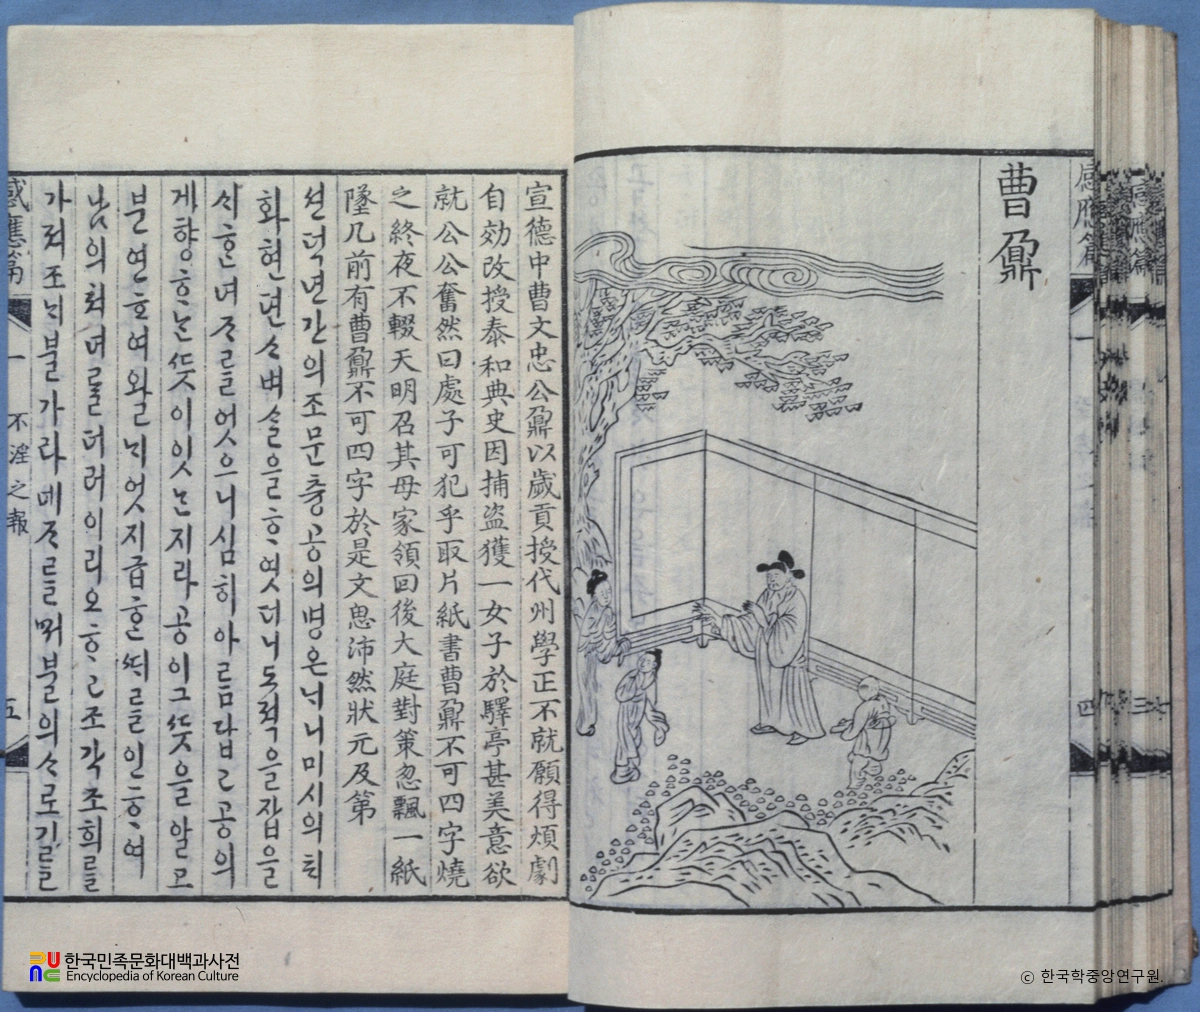 曹鼐
感應篇
一
四
宣德中曹文忠公鼐以歲貢授代州學正不就願得煩劇
自効改授泰和典史因捕盜獲一女子於驛亭甚美意欲
就公公奮然曰處子可犯乎取片紙書曹鼐不可四字燒
之終夜不輟天明召其母家領回後大庭對策忽飄一紙
墜几前有曹鼐不可四字於是文思沛然狀元及第
션덕년간의조문튱공의명은내니미시의태
화현뎐ᄉᆞ벼ᄉᆞᆯ을ᄒᆞ엿더니도적을잡을
ᄉᆡ ᄒᆞᆫ녀ᄌᆞᄅᆞᆯ어드니심히아ᄅᆞᆷ답고공의
게향ᄒᆞᄂᆞᆫᄯᅳᆺ이잇ᄂᆞᆫ지라공이그ᄯᅳᆺ을알고
분연ᄒᆞ여왈ᄂᆡ엇지급ᄒᆞᆫᄯᅢᄅᆞᆯ인ᄒᆞ여
ᄂᆞᆷ의쳐녀ᄅᆞᆯ더러이리오ᄒᆞ고조각조희ᄅᆞᆯ
가져조ᄂᆡ불가라네ᄌᆞᄅᆞᆯᄡᅥ불의ᄉᆞ로기ᄅᆞᆯ
感應篇
一
不淫之報
五
한국민족문화대백과사전
Encyclopedia of Korean Culture
ⓒ 한국학중앙연구원.